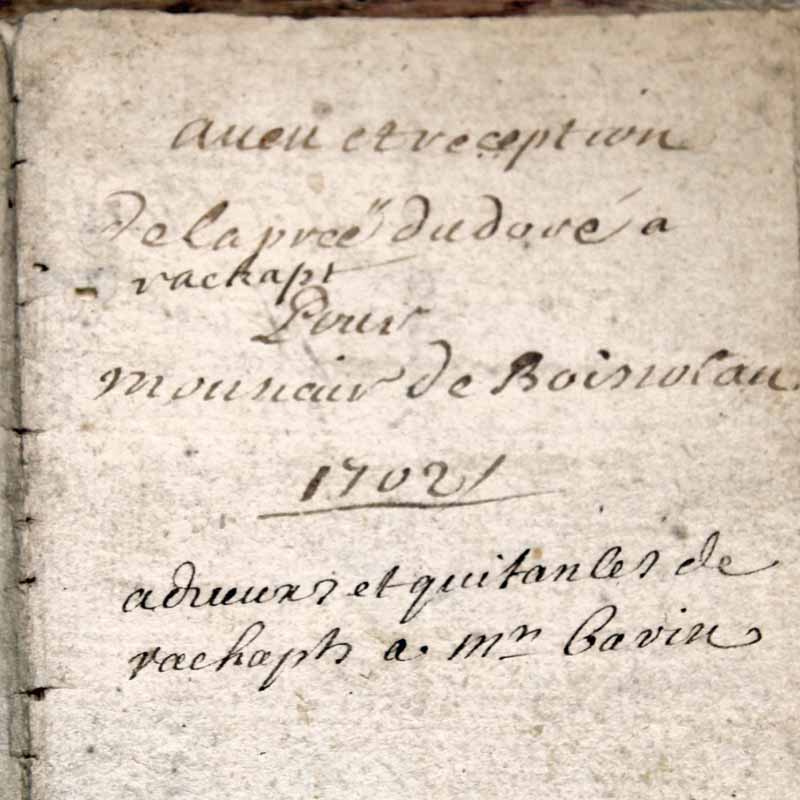 aueu et reception
de la preé du doré a
rachapt
Pour
monsieur de Boisnolan
1702
adueurs et quitances de
rachapts a mr Gavin